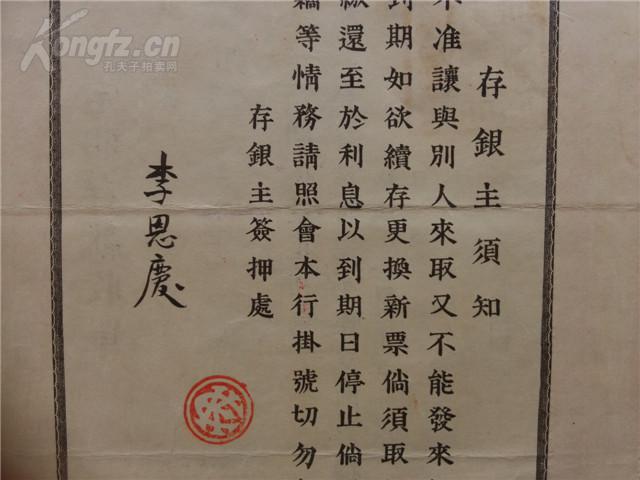 Kongfz.cn
孔夫子拍卖网
存銀主須知
不准讓與別人來取又不能發來
到期如欲續存更換新票倘須取
繳還至於利息以到期日停止倘
等情務請照會本行掛號切勿
存銀主簽押處
李恩慶